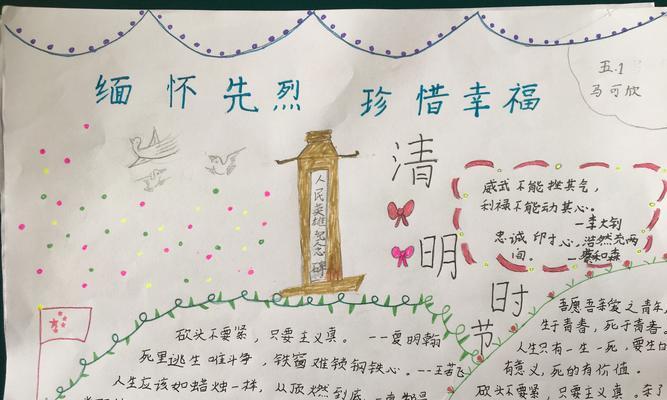 缅怀先烈 珍惜幸福
五.1
马可欣
人民英雄纪念碑
清明时节
威武不能挫其气,
利禄不能动其心。
—李大钊
忠诚印寸心,浩然充两
间。 —蔡和森
砍头不要紧,只要主义真。 —夏明翰
死里逃生唯斗争,铁窗难锁钢铁心。--王若飞
人生应该如蜡烛一样,从顶燃到底
吾愿吾亲爱之青年
生于青春,死于青春
人生只有一生一死,要生的
有意义,死的有价值。
砍头不要紧,只要主义真。杀了